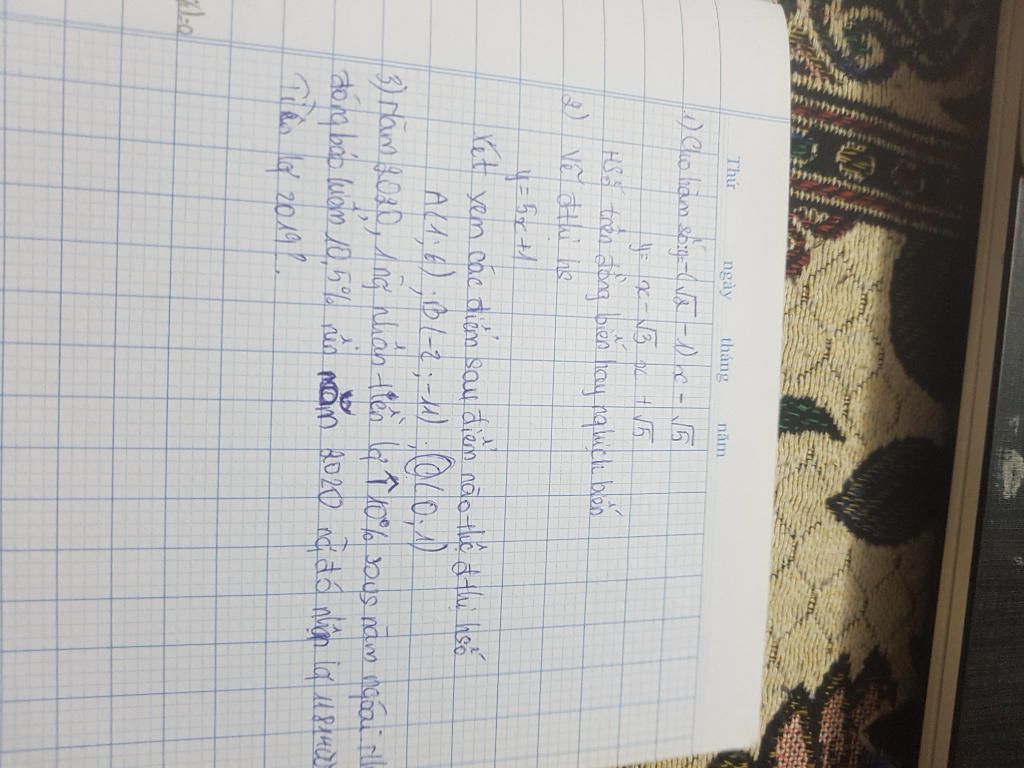 Thứ ngày tháng năm
1) Cho hàm số y = (√2 - 1)x - √5
y = x - √3 x + √5
HSố trên đồng biến hay nghịch biến
2) Vẽ đthị hs
y = 5x + 1
Xét xem các điểm sau điểm nào thộ đthị hsố
A(1; 6); B(-2; -11); Q(0; 1)
3) Năm 2020, 1 ng nhân tiền lg ↑ 10% song năm ngoái
đóng bảo hiểm 10,5% nên năm 2020 ng đó nhận lg
Tiền lg 2019?